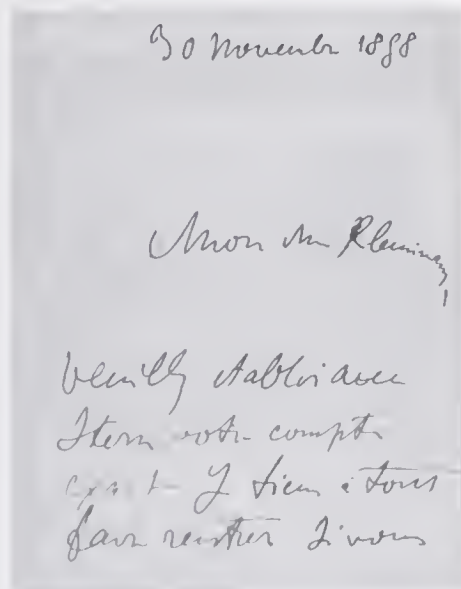 30 Novembre 1898
Mon cher Kleinmann,
Veuillez établir avec
Stern votre compte
exact. Je tiens à vous
faire rentrer si vous